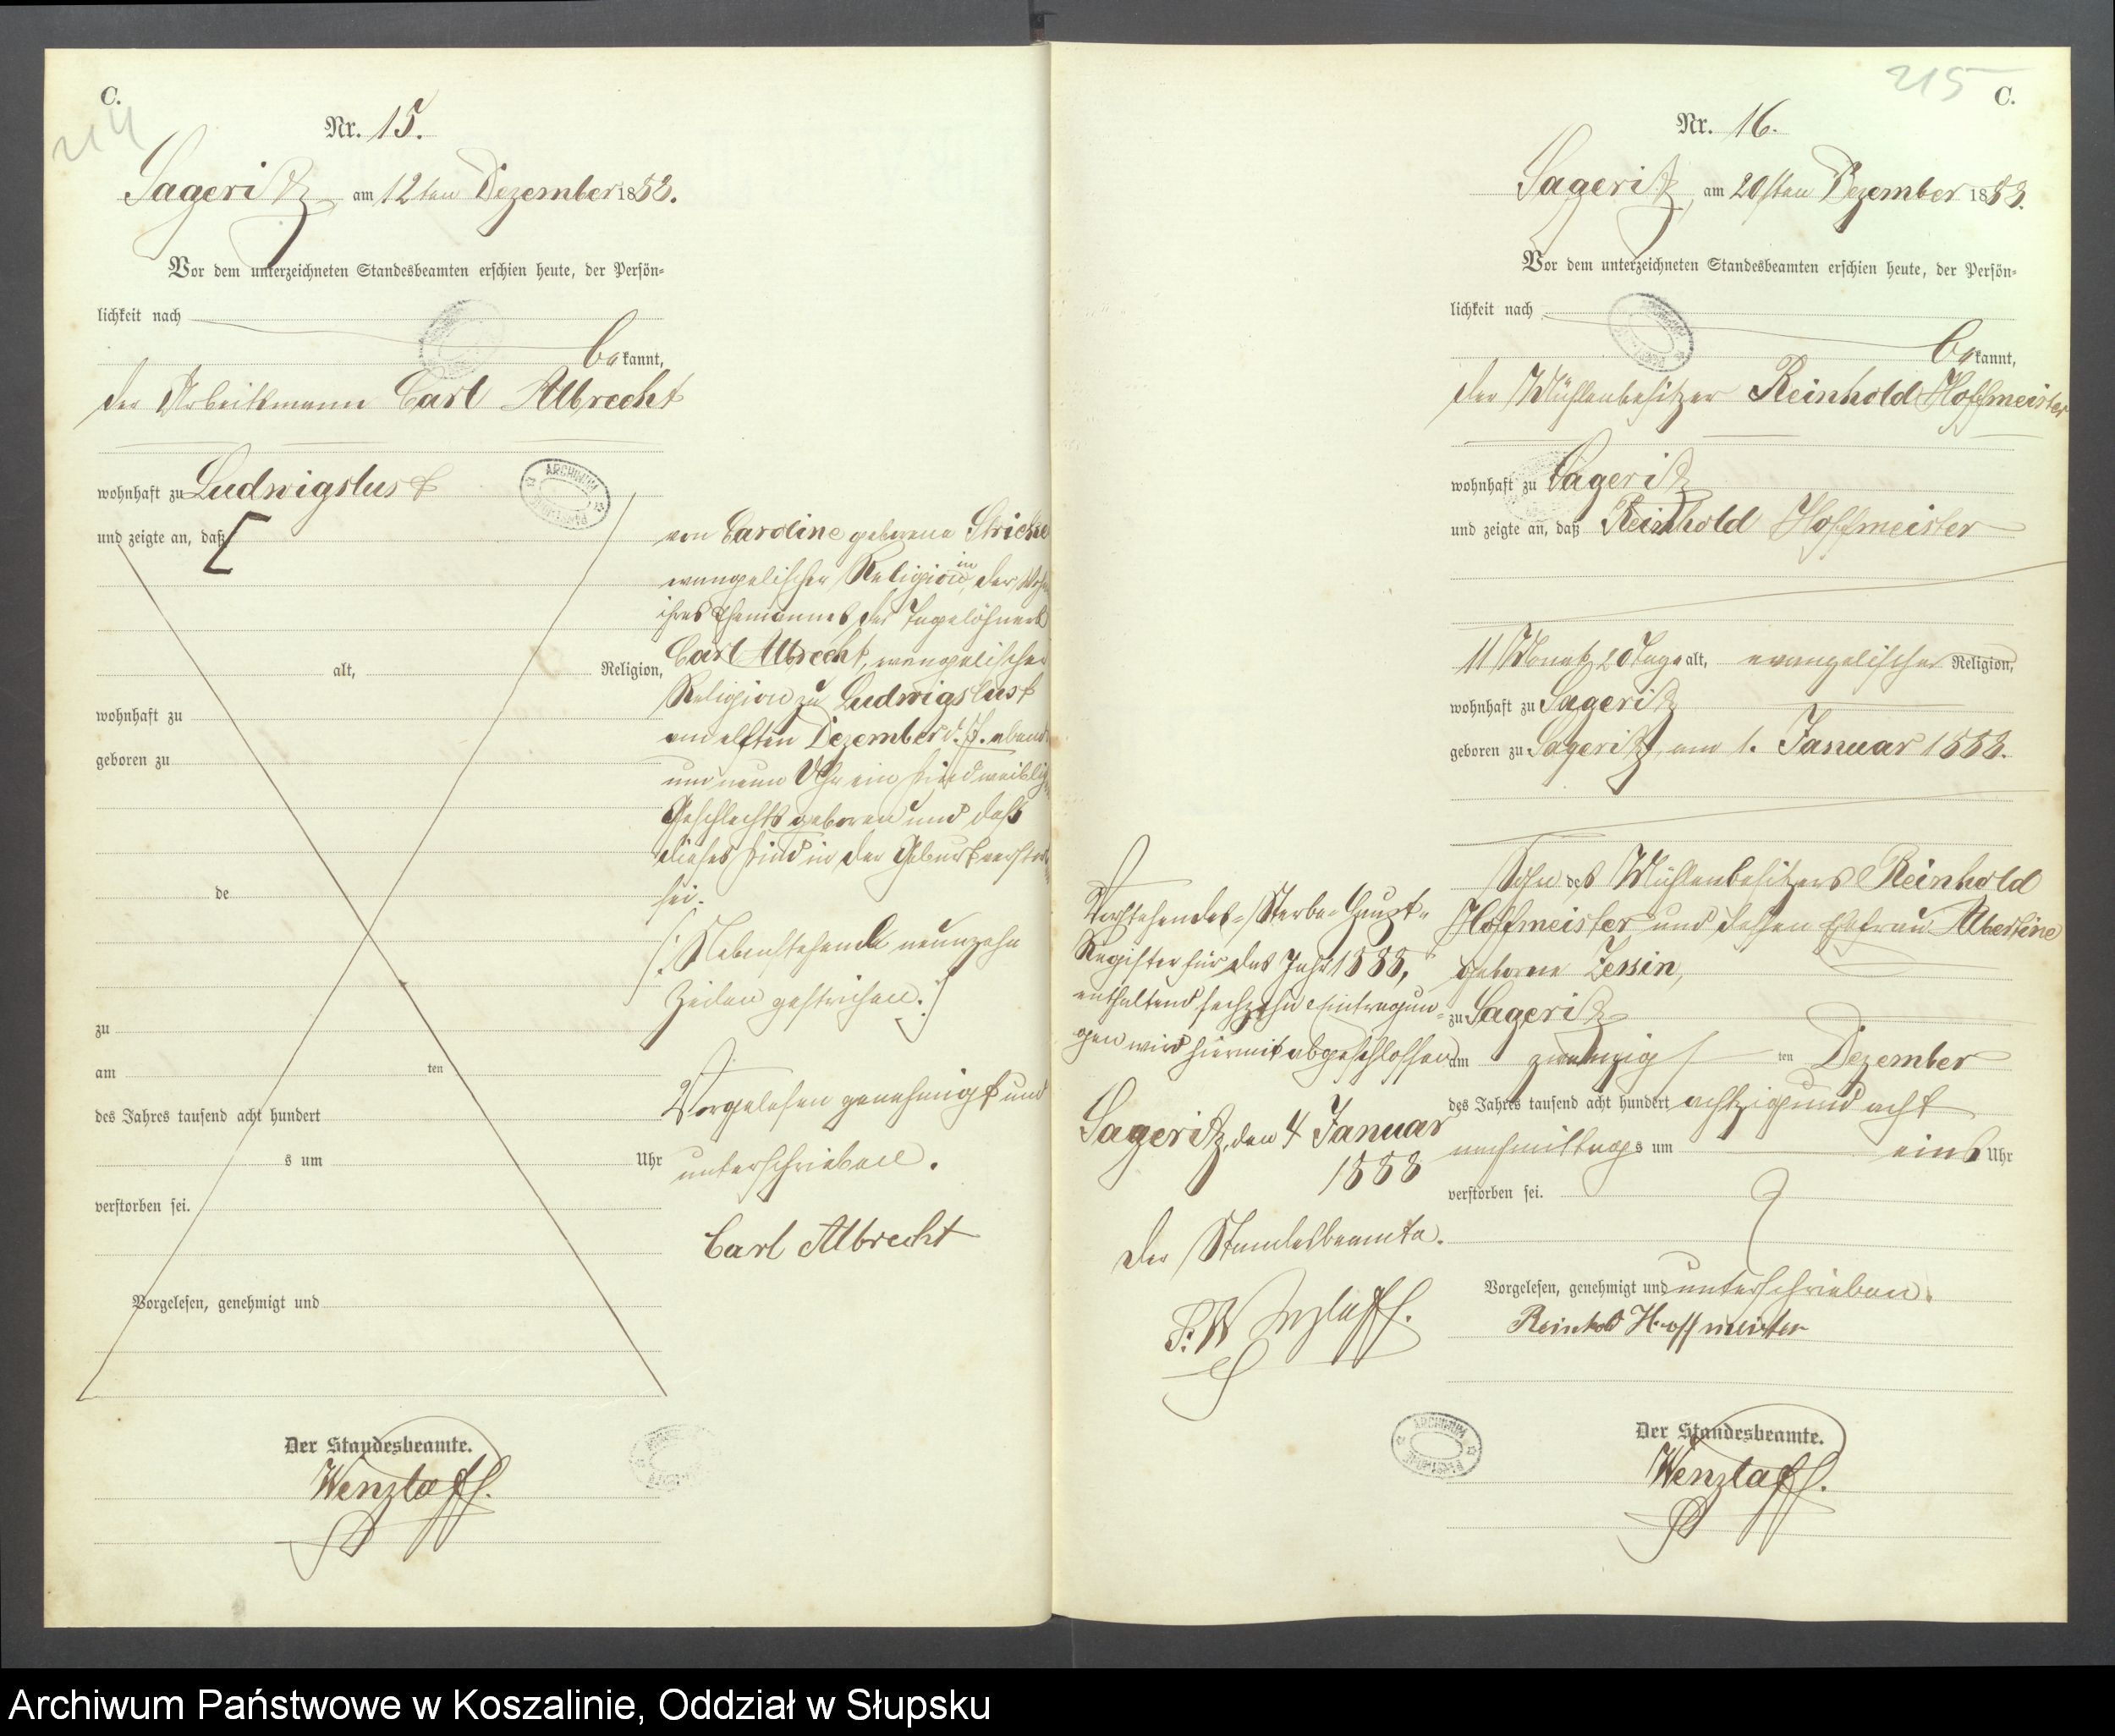 C.
214
Nr. 15.
Sageritz am 12ten Dezember 1888.
Vor dem unterzeichneten Standesbeamten erschien heute, der Persön-
lichkeit nach
bekannt,
der Arbeitsmann Carl Albrecht
wohnhaft zu Ludwigslust
und zeigte an, daß [
alt, Religion,
wohnhaft zu
geboren zu
de
zu
am ten
des Jahres tausend acht hundert
s um Uhr
verstorben sei.
Vorgelesen, genehmigt und
von Caroline geborene
evangelischer Religion, in der
ihres Ehemannes des Tagelöhners
Carl Albrecht, evangelischer
Religion zu Ludwigslust
am elften Dezember d. J. abends
um neun Uhr ein Kind weiblichen
Geschlechts geboren und daß
dieses Kind in der Geburt verstorben
sei.
/: Nebenstehende neunzehn
Zeilen gestrichen. :/
Vorgelesen genehmigt und
unterschrieben.
Carl Albrecht
Der Standesbeamte.
Wenzlaff.
ARCHIWUM
215
C.
Nr. 16.
Sageritz, am 20sten Dezember 1888.
Vor dem unterzeichneten Standesbeamten erschien heute, der Persön-
lichkeit nach
bekannt,
der Mühlenbesitzer Reinhold Hoffmeister
wohnhaft zu Sageritz
und zeigte an, daß Reinhold Hoffmeister
11 Monat 20 Tage alt, evangelischer Religion,
wohnhaft zu Sageritz
geboren zu Sageritz, am 1. Januar 1888.
Sohn des Mühlenbesitzers Reinhold
Hoffmeister und dessen Ehefrau Albertine
geborene Zessin,
zu Sageritz
am zwanzig ten Dezember
des Jahres tausend acht hundert achtzig und acht
nachmittags um eins Uhr
verstorben sei.
Vorgelesen, genehmigt und unterschrieben.
Reinhold Hoffmeister
Der Standesbeamte.
Wenzlaff.
Vorstehendes Sterbe-Haupt-
Register für das Jahr 1888,
enthaltend sechzehn Eintragun-
gen wird hiermit abgeschlossen
Sageritz, den 4 Januar
1888
Der Standesbeamte.
F. Wenzlaff.
ARCHIWUM
Archiwum Państwowe w Koszalinie, Oddział w Słupsku